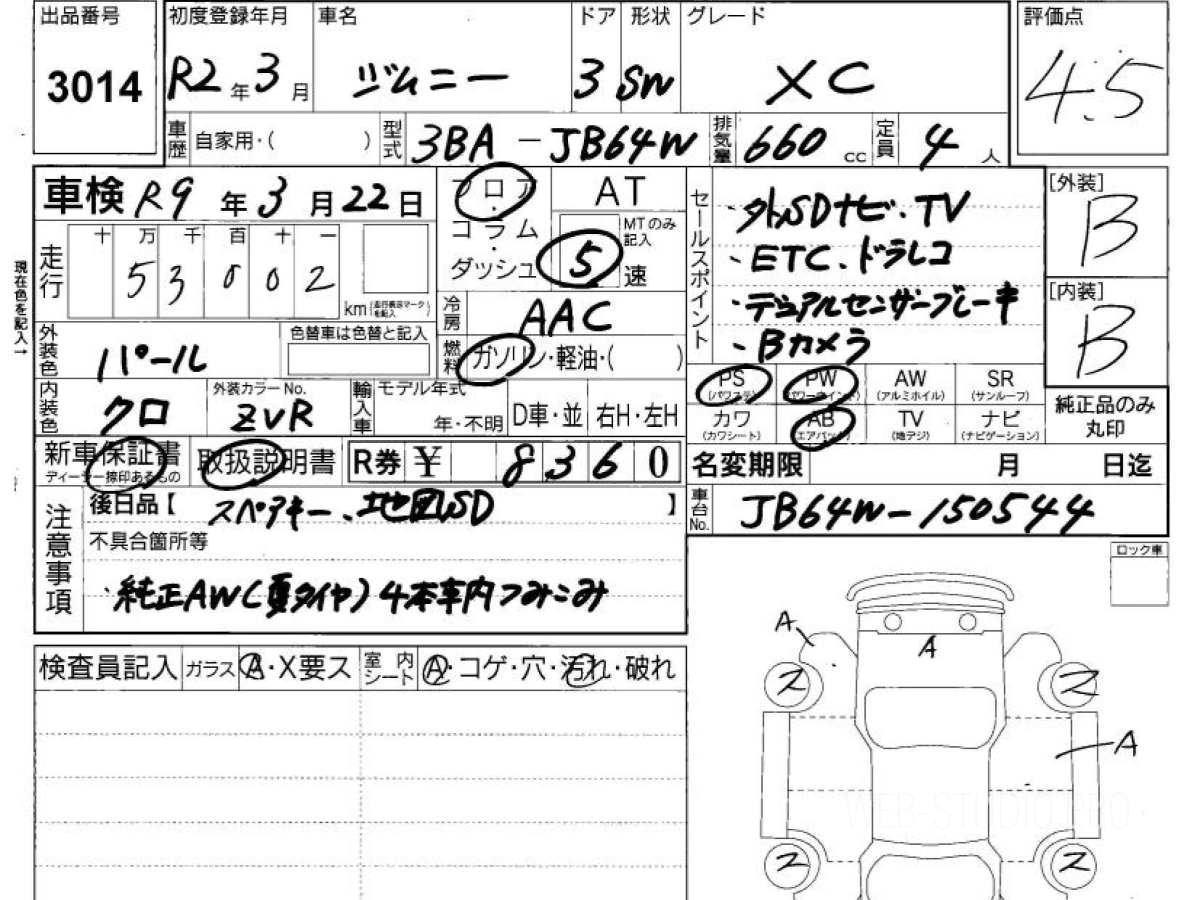 出品番号
3014
初度登録年月 車名 ドア 形状 グレード
R2年3月 ジムニー 3 SW XC
評価点
4.5
車歴 自家用・( ) 型式 3BA-JB64W 排気量 660 cc 定員 4人
車検 R9年3月22日
フロア・コラム・ダッシュ
AT
MTのみ記入
5速
セールスポイント
・外SDナビ・TV
・ETC.ドラレコ
・デュアルセンサーブレーキ
・Bカメラ
[外装]
B
[内装]
B
現在色を記入→
走行 十 万 千 百 十 一
53002 km (走行表示マークを記入)
冷房 AAC
外装色 パール 色替車は色替と記入
燃料 ガソリン・軽油・( )
PS (パワステ) PW (パワーウインド) AW (アルミホイル) SR (サンルーフ)
カワ (カワシート) AB (エアバッグ) TV (地デジ) ナビ (ナビゲーション)
純正品のみ丸印
内装色 クロ 外装カラーNo. ZVR 輸入車 モデル年式 年・不明 D車・並 右H・左H
新車保証書 ディーラー捺印あるもの 取扱説明書 R券 ¥ 8360
名変期限 月 日迄
注意事項
後日品【 スペアキー、地図SD 】
車台No. JB64W-150544
不具合箇所等
・純正AW(夏タイヤ)4本車内つみこみ
ロック車
検査員記入 ガラス A・X要ス 室内シート A・コゲ・穴・汚れ・破れ
A
A
ス ス
A
ス ス
WEB-STUDIO.PRO